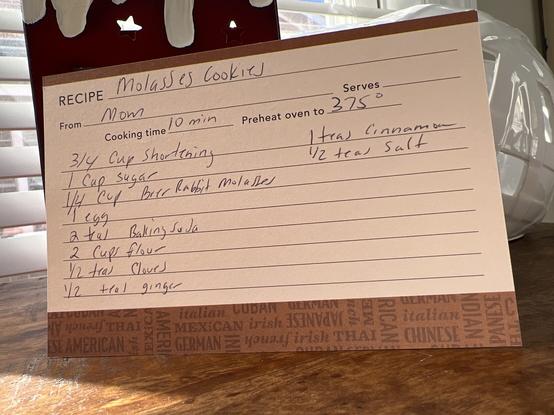 RECIPE Molasses Cookies
From Mom Serves
Cooking time 10 min Preheat oven to 375°
3/4 Cup Shortening 1 teas Cinnamon
1 Cup Sugar 1/2 teas Salt
1/4 Cup Brer Rabbit Molasses
1 egg
2 teas Baking Soda
2 Cups flour
1/2 teas Cloves
1/2 teas ginger
italian CUBAN GERMAN italian
french THAI MEXICAN irish JAPANESE GERMAN CHINESE INDIAN
AMERICAN GERMAN french irish THAI